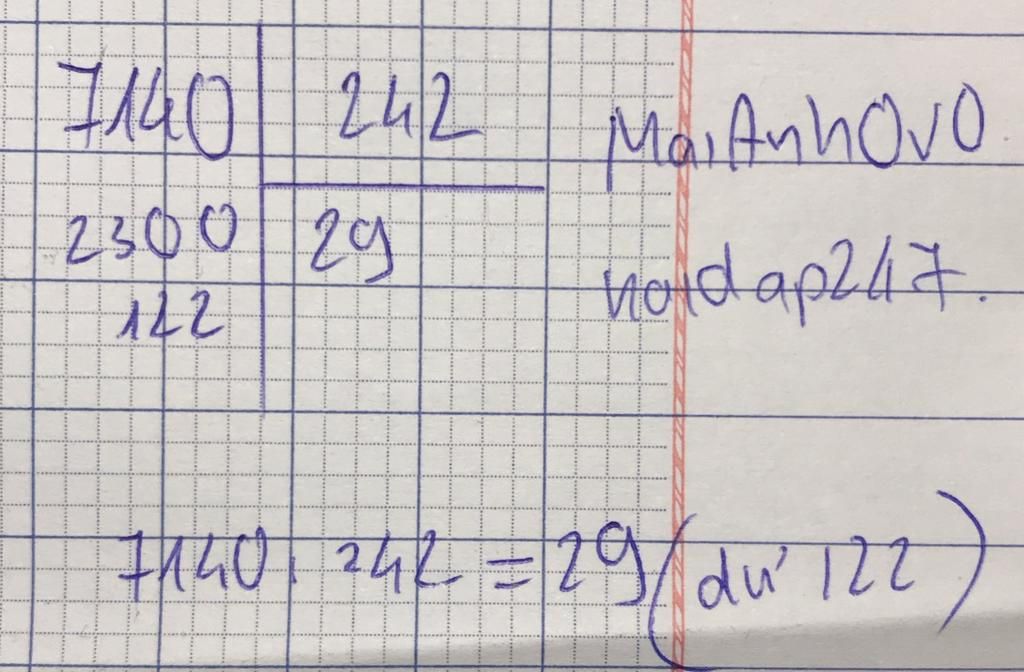 7140 242 MaiAnh0v0
2300 29 hoidap247.
122
7140 : 242 = 29 (dư 122)